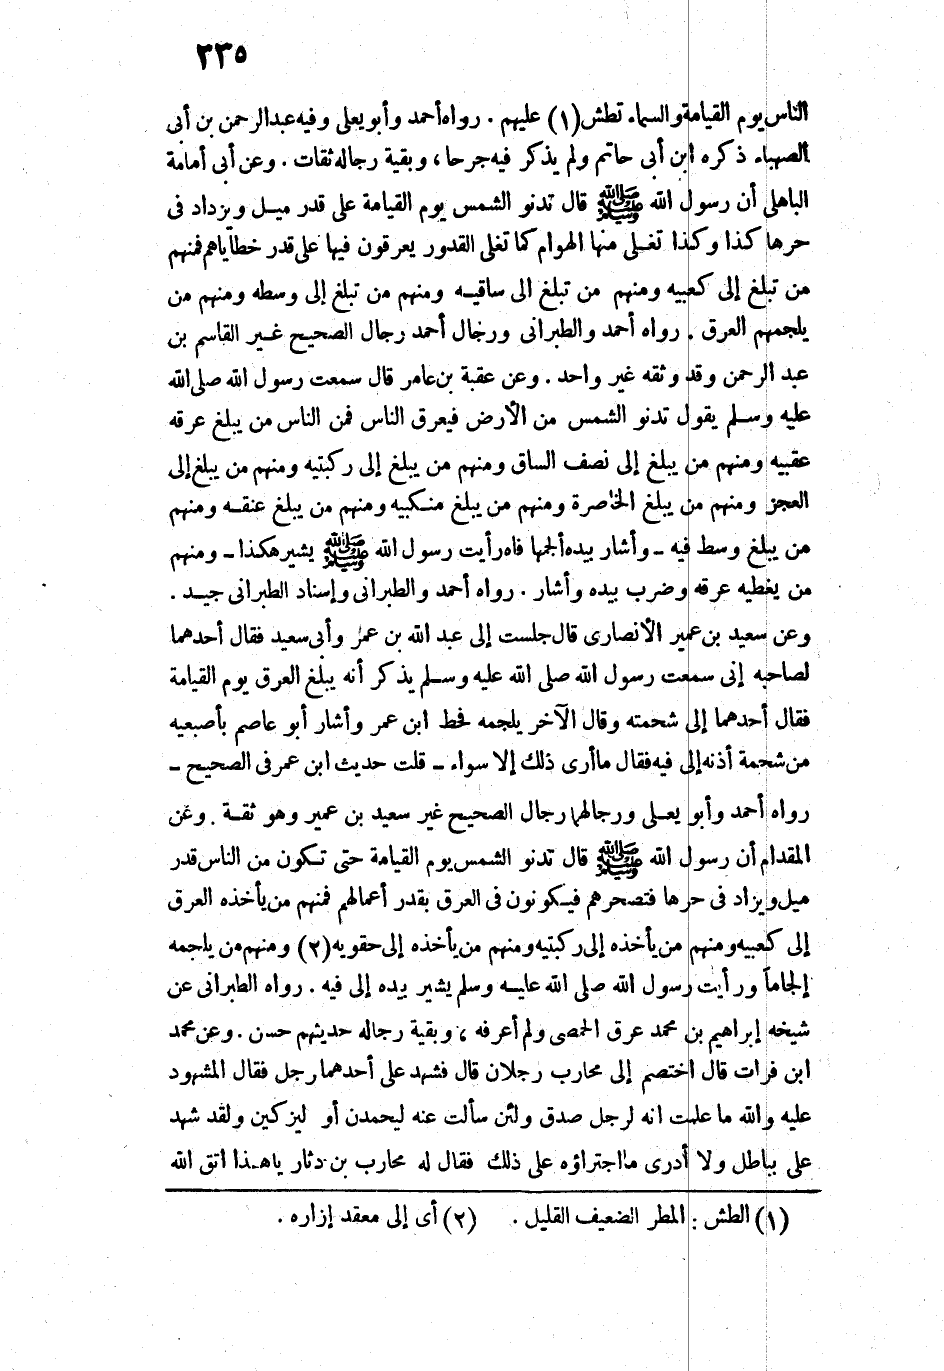 ٣٣٥
الناس يوم القيامة والسماء تطش (١) عليهم . رواه أحمد وأبو يعلى وفيه عبد الرحمن بن أبى
الصهباء ذكره ابن أبى حاتم ولم يذكر فيه جرحا ، وبقية رجاله ثقات . وعن أبى أمامة
الباهلى أن رسول الله ﷺ قال تدنو الشمس يوم القيامة على قدر ميل ويزداد فى
حرها كذا وكذا تغلى منها الهوام كما تغلى القدور يعرقون فيها على قدر خطاياهم فمنهم
من تبلغ إلى كعبيه ومنهم من تبلغ الى ساقيه ومنهم من تبلغ إلى وسطه ومنهم من
يلجمهم العرق . رواه أحمد والطبرانى ورجال أحمد رجال الصحيح غير القاسم بن
عبد الرحمن وقد وثقه غير واحد . وعن عقبة بن عامر قال سمعت رسول الله صلى الله
عليه وسلم يقول تدنو الشمس من الأرض فيعرق الناس فمن الناس من يبلغ عرقه
عقبيه ومنهم من يبلغ إلى نصف الساق ومنهم من يبلغ إلى ركبتيه ومنهم من يبلغ إلى
العجز ومنهم من يبلغ الخاصرة ومنهم من يبلغ منكبيه ومنهم من يبلغ عنقه ومنهم
من يبلغ وسط فيه ـ وأشار بيده ألجمها فاه رأيت رسول الله ﷺ يشير هكذا ـ ومنهم
من يغطيه عرقه وضرب بيده وأشار . رواه أحمد والطبرانى وإسناد الطبرانى جيد .
وعن سعيد بن عمير الأنصارى قال جلست إلى عبد الله بن عمر وأبى سعيد فقال أحدهما
لصاحبه إنى سمعت رسول الله صلى الله عليه وسلم يذكر أنه يبلغ العرق يوم القيامة
فقال أحدهما إلى شحمته وقال الآخر يلجمه فخط ابن عمر وأشار أبو عاصم بأصبعيه
من شحمة أذنه إلى فيه فقال ماأرى ذلك إلا سواء ـ قلت حديث ابن عمر فى الصحيح ـ
رواه أحمد وأبو يعلى ورجالهما رجال الصحيح غير سعيد بن عمير وهو ثقة . وعن
المقدام أن رسول الله ﷺ قال تدنو الشمس يوم القيامة حتى تكون من الناس قدر
ميل ويزاد فى حرها فتصحرهم فيكونون فى العرق بقدر أعمالهم فمنهم من يأخذه العرق
إلى كعبيه ومنهم من يأخذه إلى ركبتيه ومنهم من يأخذه إلى حقويه (٢) ومنهم من يلجمه
إلجاماً ورأيت رسول الله صلى الله عليه وسلم يشير بيده إلى فيه . رواه الطبرانى عن
شيخه إبراهيم بن محمد عرق الحمصى ولم أعرفه ، وبقية رجاله حديثهم حسن . وعن محمد
ابن فرات قال اختصم إلى محارب رجلان قال فشهد على أحدهما رجل فقال المشهود
عليه والله ما علمت انه لرجل صدق ولئن سألت عنه ليحمدن أو ليزكين ولقد شهد
على بباطل ولا أدرى مااجتراؤه على ذلك فقال له محارب بن دثار ياهذا اتق الله
(١) الطش : المطر الضعيف القليل . (٢) أى إلى معقد إزاره .